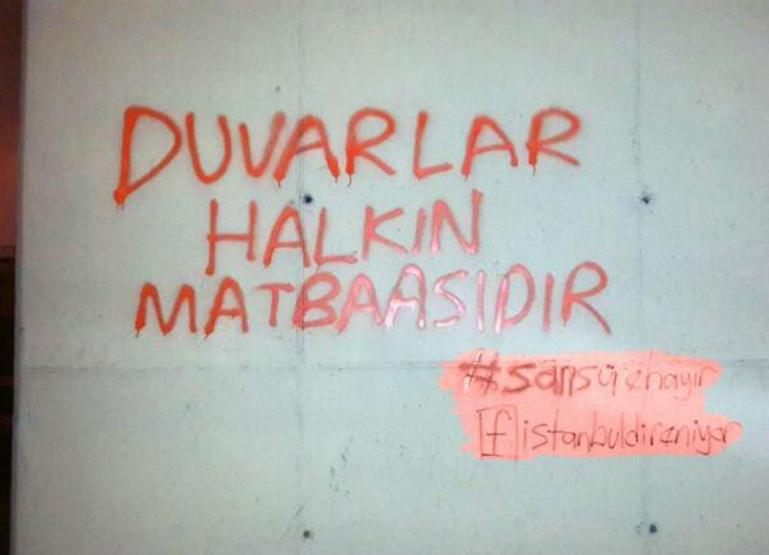 DUVARLAR
HALKIN
MATBAASIDIR
#sansürehayır
f istanbuldireniyor